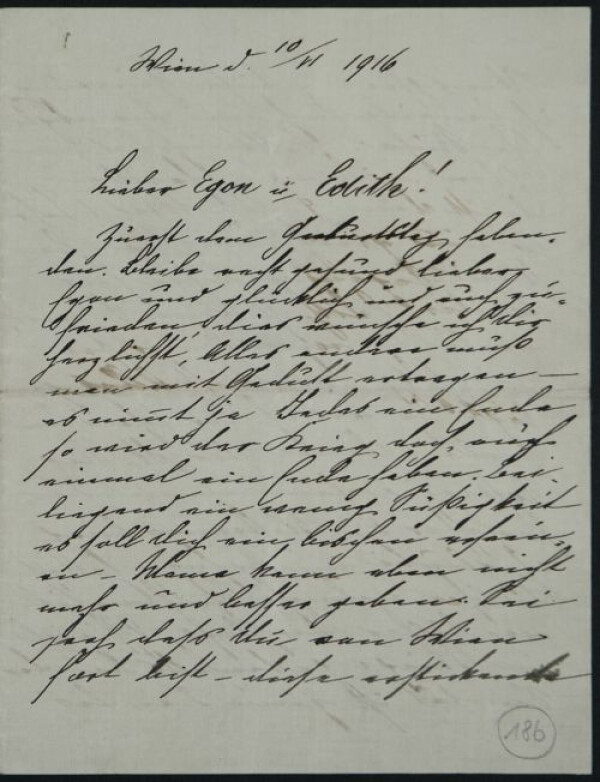 Wien d. 10/VI 1916
Lieber Egon u Edith!
Zuerst dem Geburtstag
Bleibe recht gesund lieber
Egon und glücklich und auch zu-
frieden, dies wünsche ich dir
herzlichst, Alles andere muß
man mit Geduld ertragen –
es nimt ja Jedes ein Ende
so wird der Krieg doch auch
einmal ein Ende haben. Bei-
liegend ein wenig Süßigkeit
es soll dich ein bischen erfreu-
en – Mama kann eben nicht
mehr und besser geben. Sei
froh dass du von Wien
fort bist – diese erstickende
186